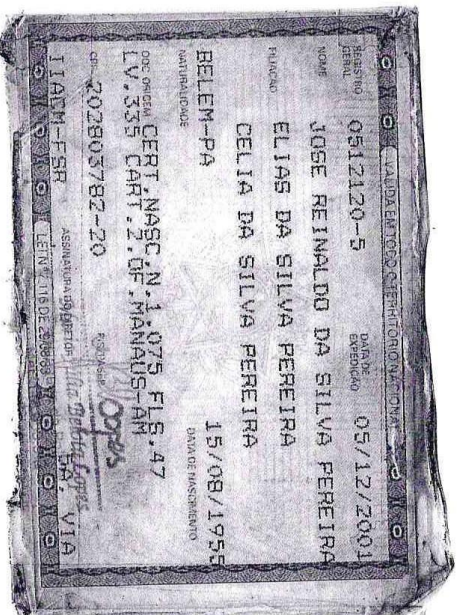 VÁLIDA EM TODO O TERRITÓRIO NACIONAL
REGISTRO GERAL 0512120-5 DATA DE EXPEDIÇÃO 05/12/2001
NOME
JOSE REINALDO DA SILVA PEREIRA
FILIAÇÃO
ELIAS DA SILVA PEREIRA
CELIA DA SILVA PEREIRA
NATURALIDADE DATA DE NASCIMENTO
BELEM-PA 15/08/1955
DOC ORIGEM CERT.NASC.N.1.075 FLS.47
LV.335 CART.2.OF.MANAUS-AM
CPF 202803782-20
IIACM-FSR 5A. VIA
ASSINATURA DO DIRETOR
LEI Nº 7.116 DE 29/08/83